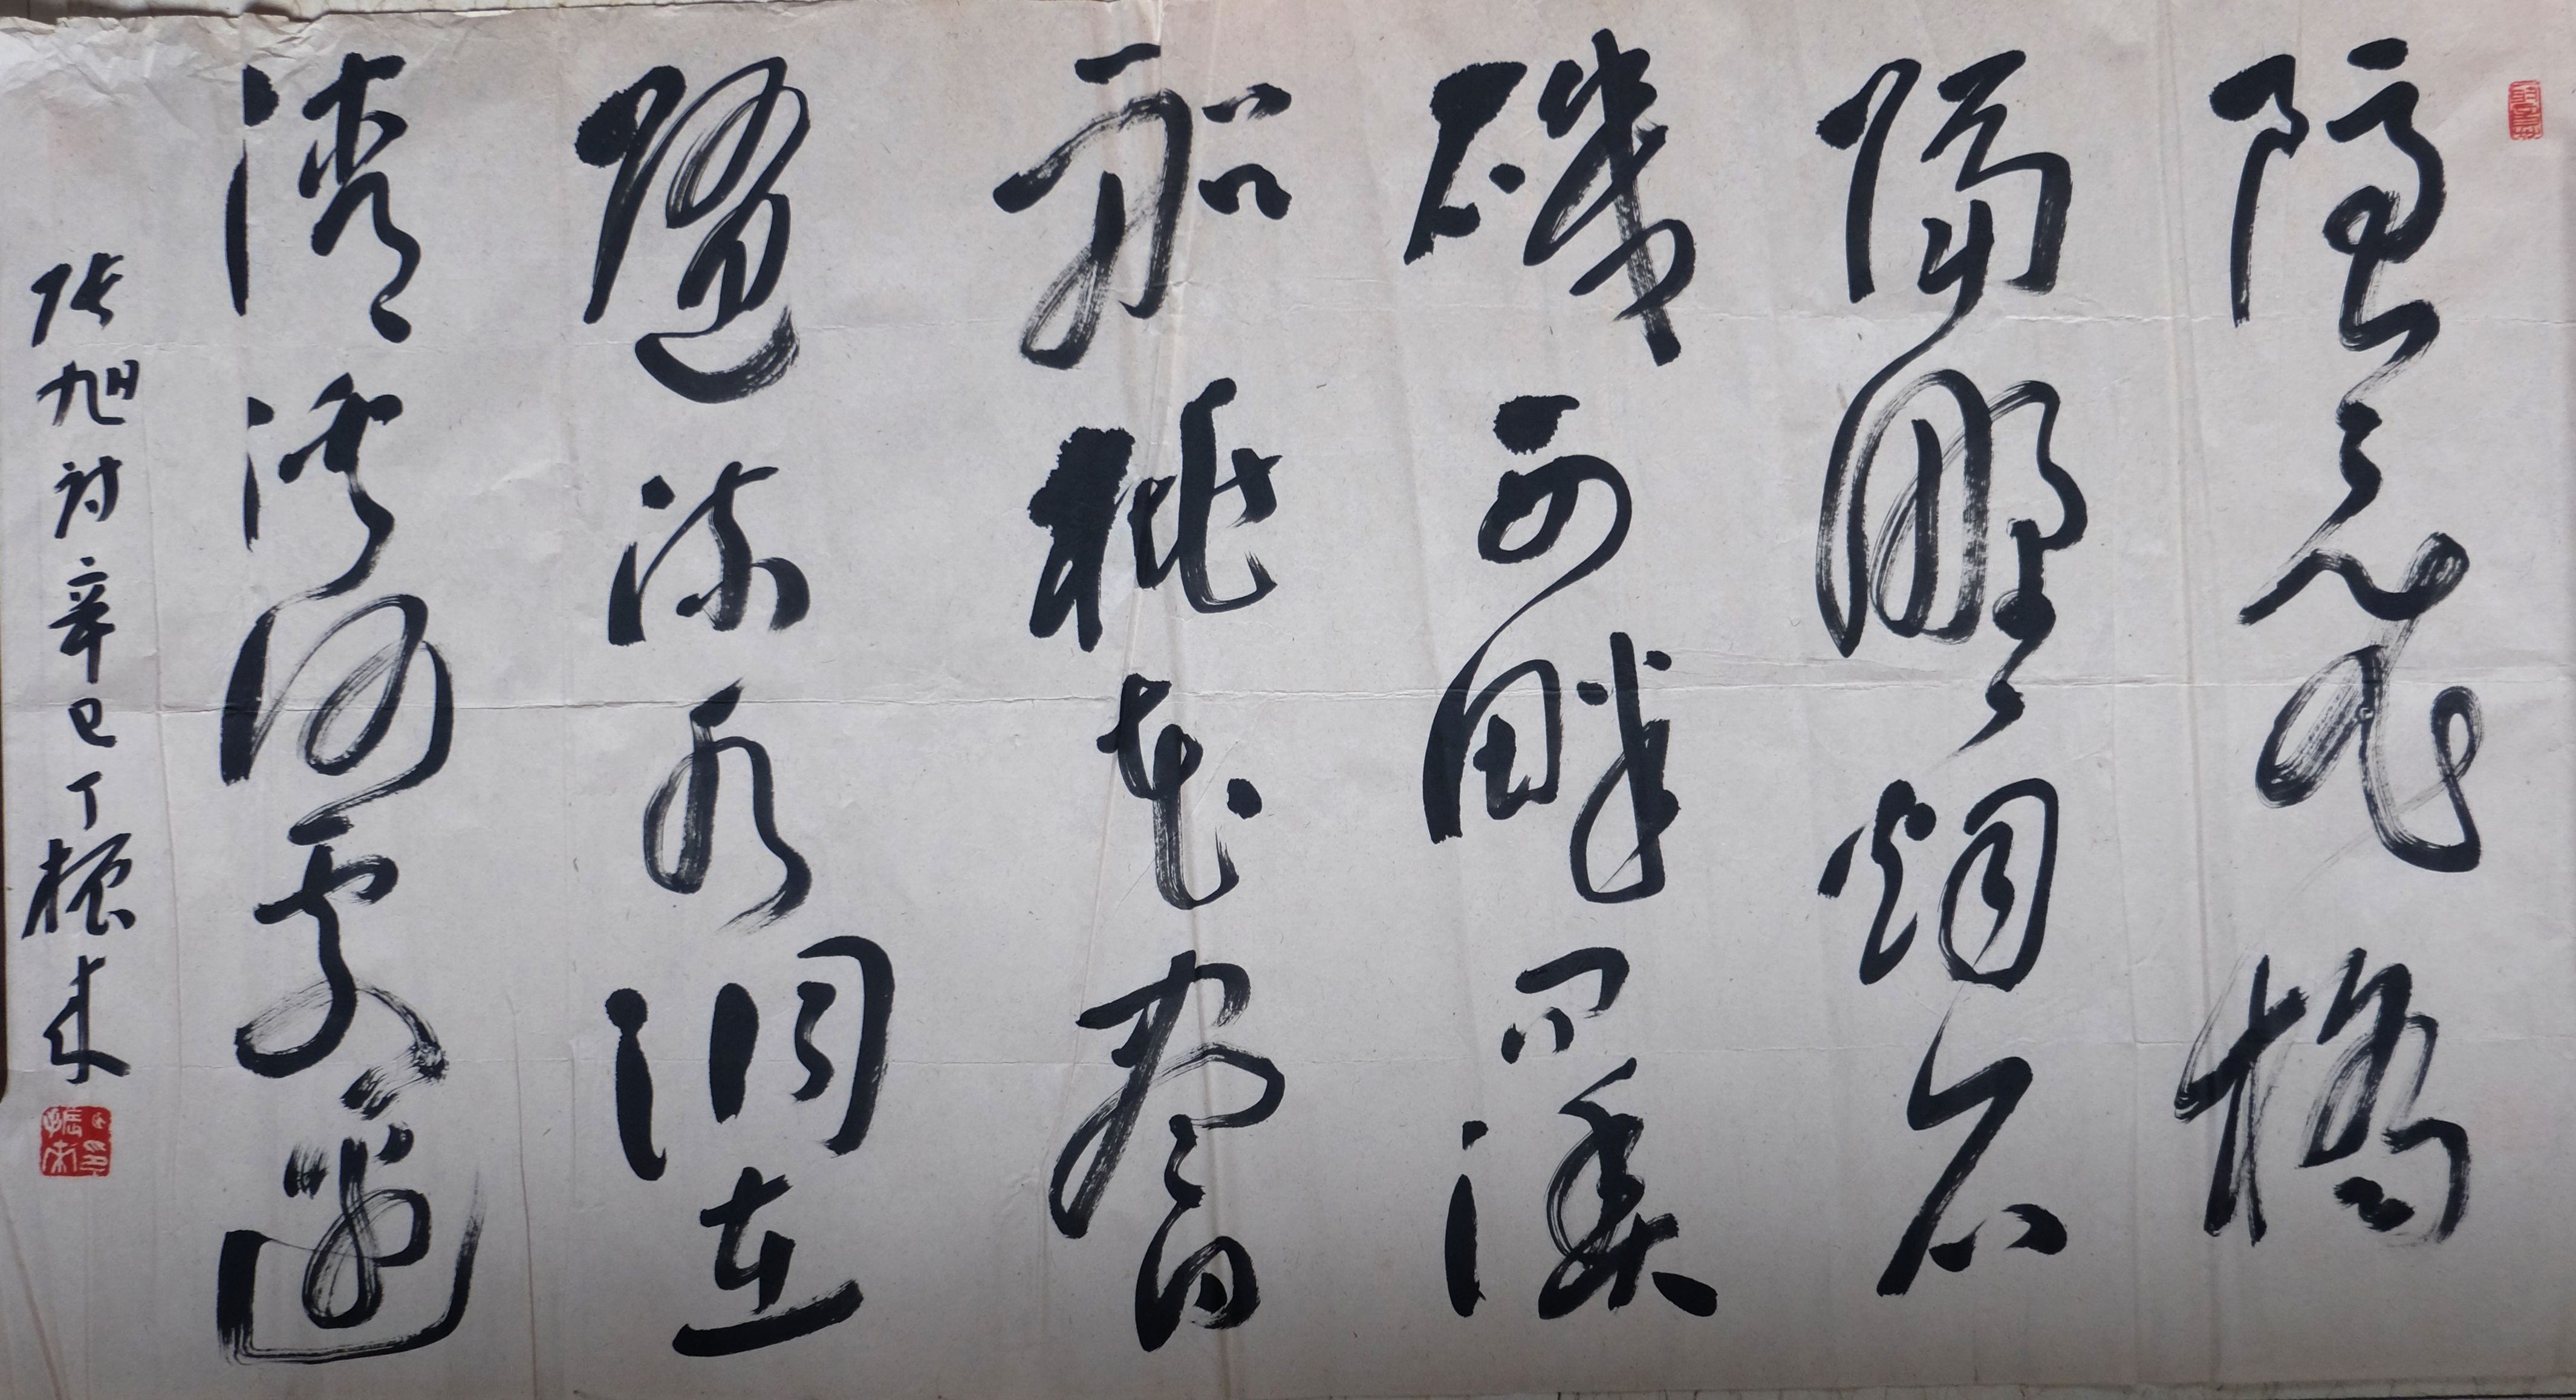 隱々飛橋
隔野烟石
磯西畔問漁
船桃花盡日
隨流水洞在
清溪何處邊
张旭诗辛巳丁振来